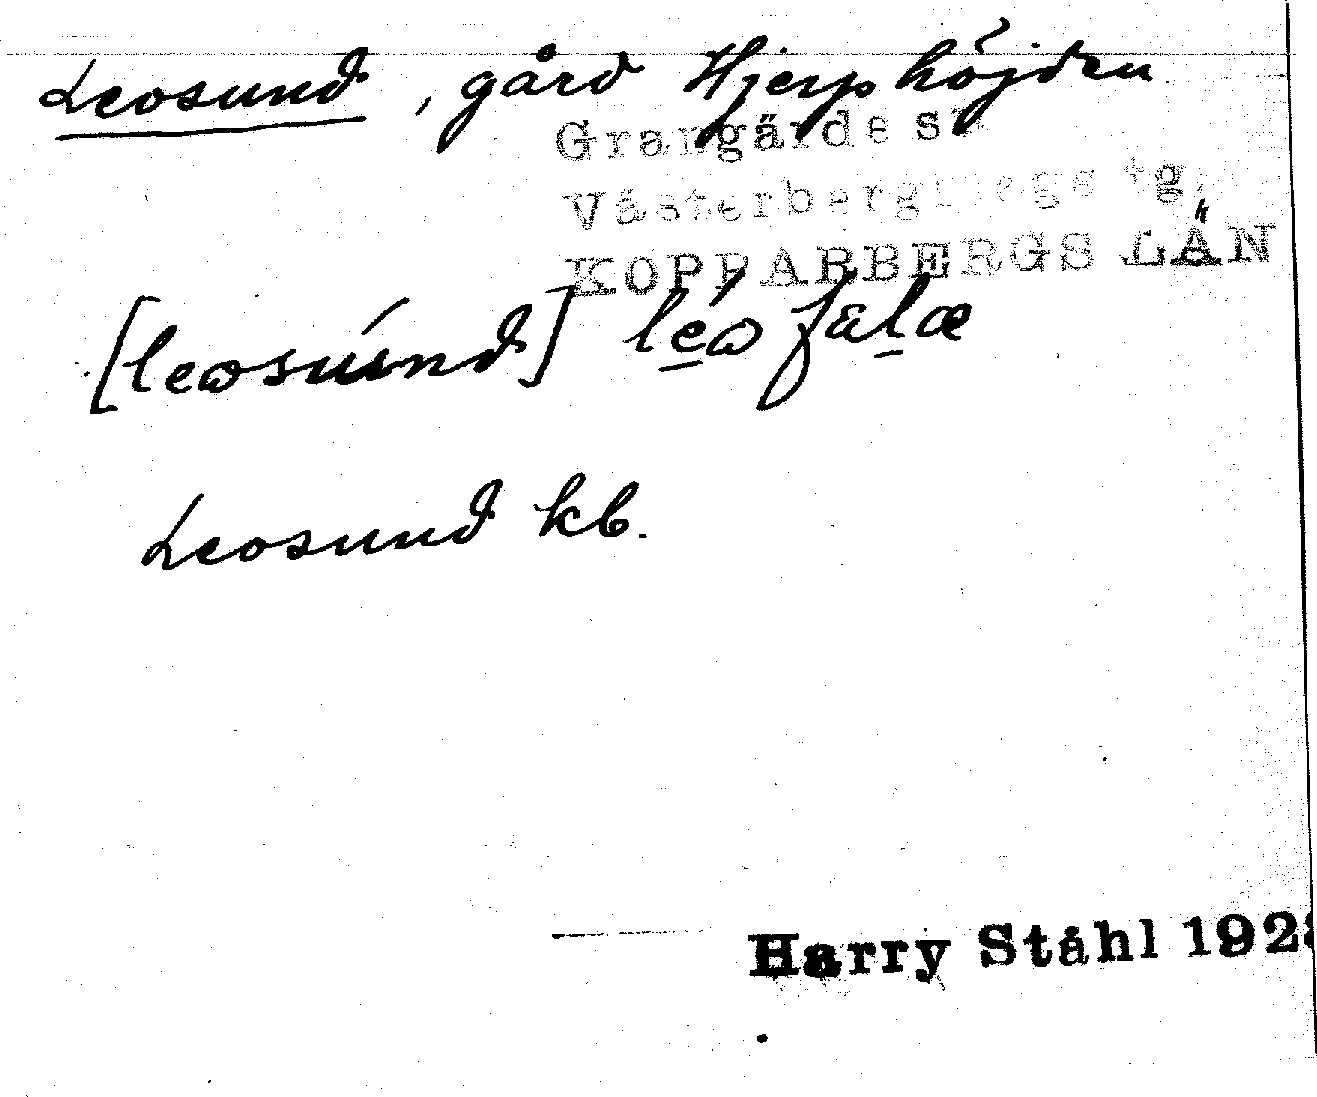 Leosund, gård Hjerphöjden
Grangärde sn
Västerbergslags tg.
KOPPARBERGS LÄN
[leosúnd] léo falæ
Leosund kb.
Harry Ståhl 1928